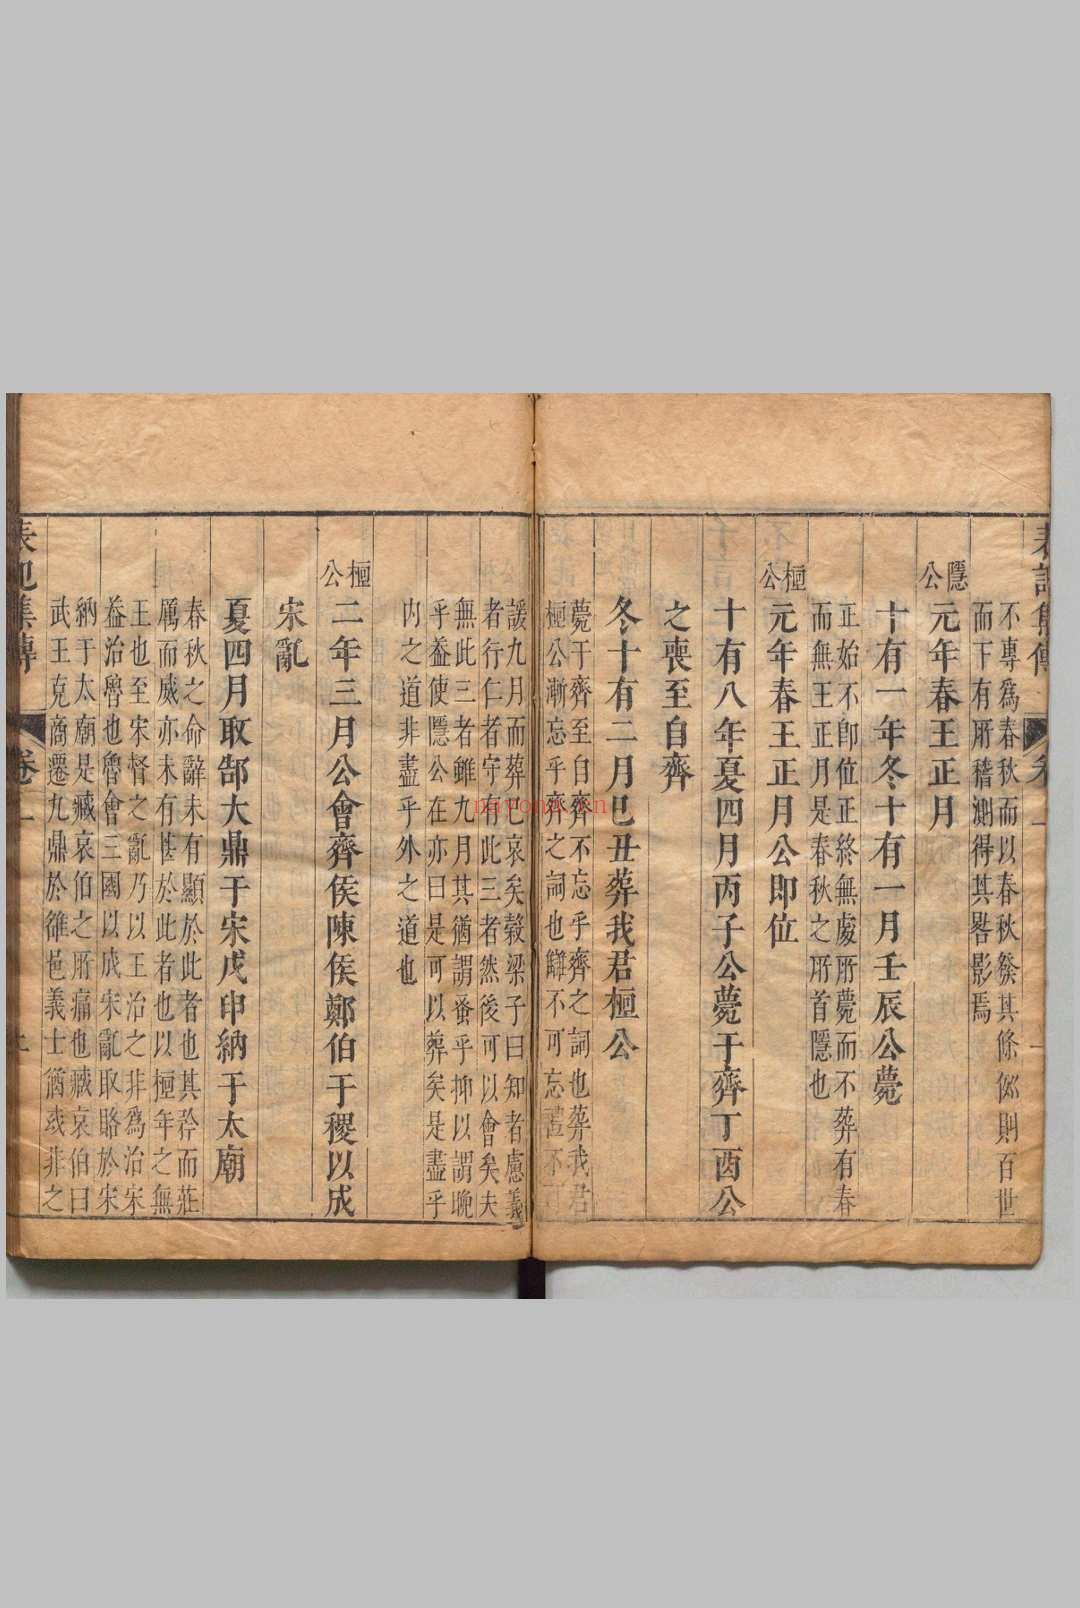 表記集傳
卷一
不專爲春秋而以春秋發其條例則百世
而下有所稽測得其畧影焉
隱公
元年春王正月
十有一年冬十有一月壬辰公薨
正始不卽位正終無處所薨而不葬有春
而無王正月是春秋之所首隱也
桓公
元年春王正月公即位
十有八年夏四月丙子公薨于齊丁酉公
之喪至自齊
冬十有二月巳丑葬我君桓公
薨于齊至自齊不忘乎齊之詞也葬我君
桓公漸忘乎齊之詞也讎不可忘禮不可
諼九月而葬巳哀矣穀梁子曰知者慮義
者行仁者守有此三者然後可以會矣夫
無此三者雖九月其猶謂蚤乎抑以謂晚
乎盍使隱公在亦曰是可以葬矣是盡乎
内之道非盡乎外之道也
桓公
二年三月公會齊侯陳侯鄭伯于稷以成
宋亂
夏四月取郜大鼎于宋戊申納于太廟
春秋之命辭未有顯於此者也其矜而莊
厲而威亦未有甚於此者也以桓年之無
王也至宋督之亂乃以王治之非爲治宋
益治魯也魯會三國以成宋亂取賂於宋
納于太廟是臧哀伯之所痛也臧哀伯曰
武王克商遷九鼎於雒邑義士猶或非之
表記集傳
卷上
上
navona.cn